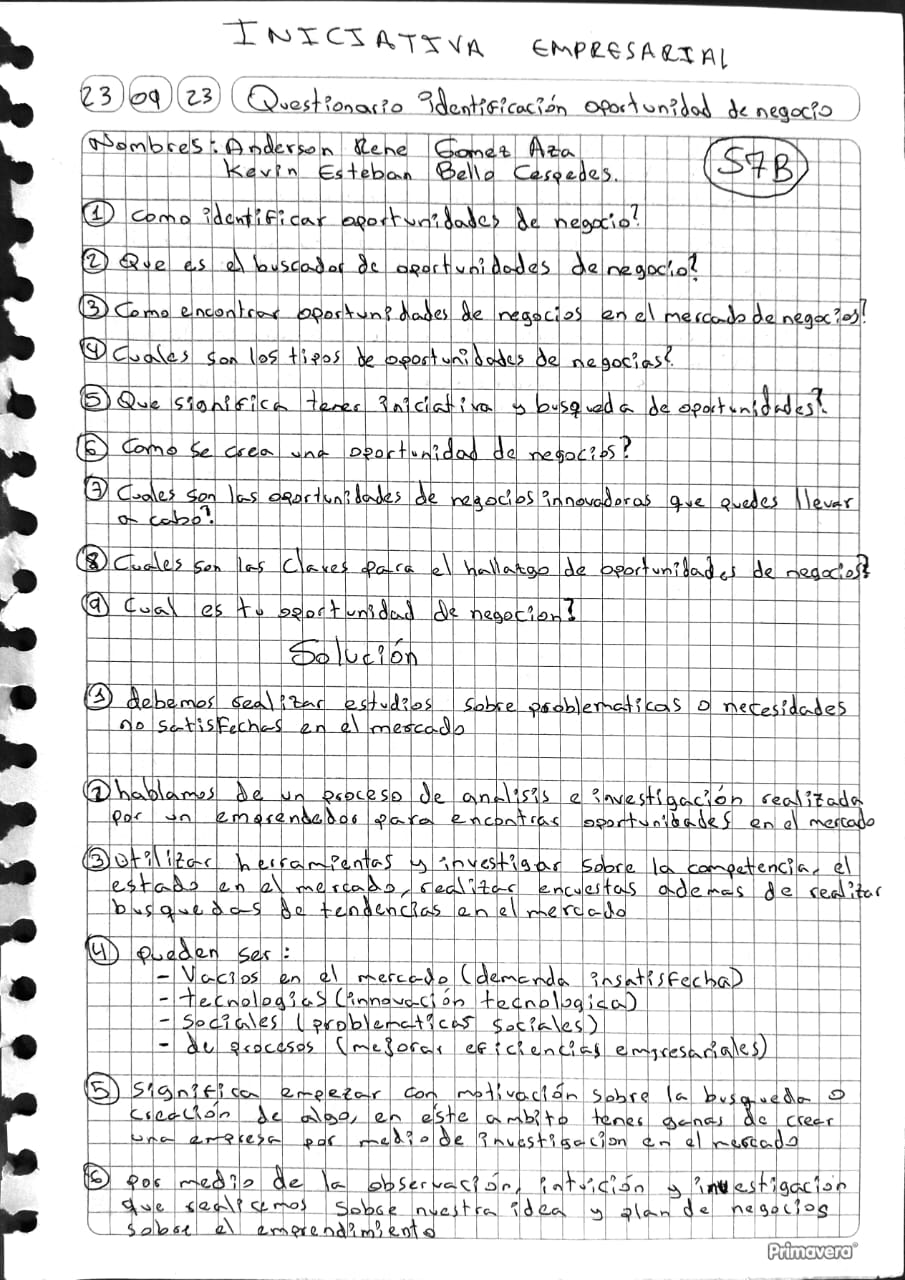 INICIATIVA EMPRESARIAL
23 09 23 Questionario identificación oportunidad de negocio
Nombres: Anderson Rene Gomez Aza
Kevin Esteban Bello Cespedes.
S7B
① Como identificar oportunidades de negocio?
② Que es el buscador de oportunidades de negocio?
③ Como encontrar oportunidades de negocios en el mercado de negocios?
④ Cuales son los tipos de oportunidades de negocias?
⑤ Que significa tener iniciativa y busqueda de oportunidades?
⑥ Como se crea una oportunidad de negocios?
⑦ Cuales son las oportunidades de negocios innovadoras que puedes llevar
a cabo?
⑧ Cuales son las claves para el hallazgo de oportunidades de negocios?
⑨ Cual es tu oportunidad de negocion?
Solución
① debemos realizar estudios sobre problematicas o necesidades
no satisfechas en el mercado
② hablamos de un proceso de analisis e investigación realizada
por un emprendedor para encontrar oportunidades en el mercado
③ Utilizar herramientas y investigar sobre la competencia, el
estado en el mercado, realizar encuestas ademas de realizar
busquedas de tendencias en el mercado
④ pueden ser:
- Vacios en el mercado (demanda insatisfecha)
- tecnologias (innovación tecnologica)
- sociales (problematicas sociales)
- de procesos (mejorar eficiencias empresariales)
⑤ significa empezar con motivación sobre la busqueda o
creación de algo, en este ambito tener ganas de crear
una empresa por medio de investigacion en el mercado
⑥ por medio de la observación, intuición y investigación
que realicemos sobre nuestra idea y plan de negocios
sobre el emprendimiento
Primavera